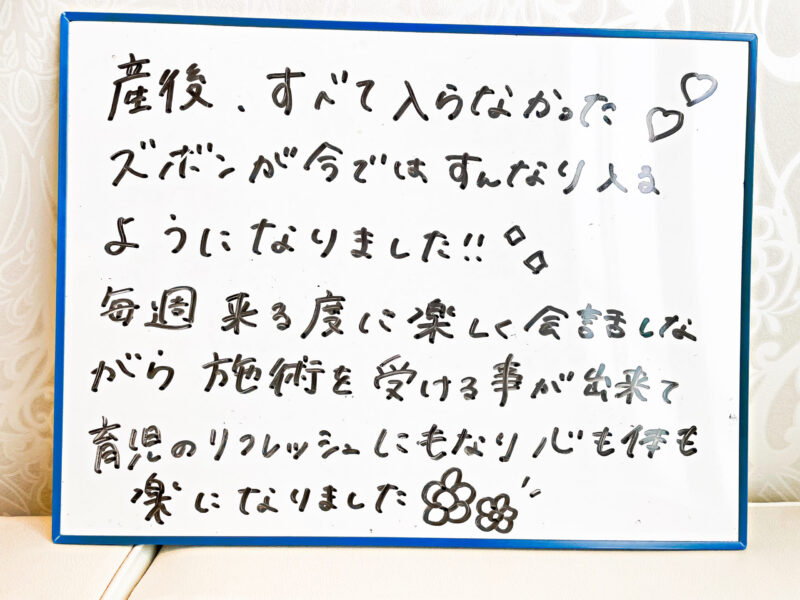 産後、すべて入らなかった
ズボンが今ではすんなり入る
ようになりました!!
毎週来る度に楽しく会話しな
がら施術を受ける事が出来て
育児のリフレッシュにもなり心も体も
楽になりました